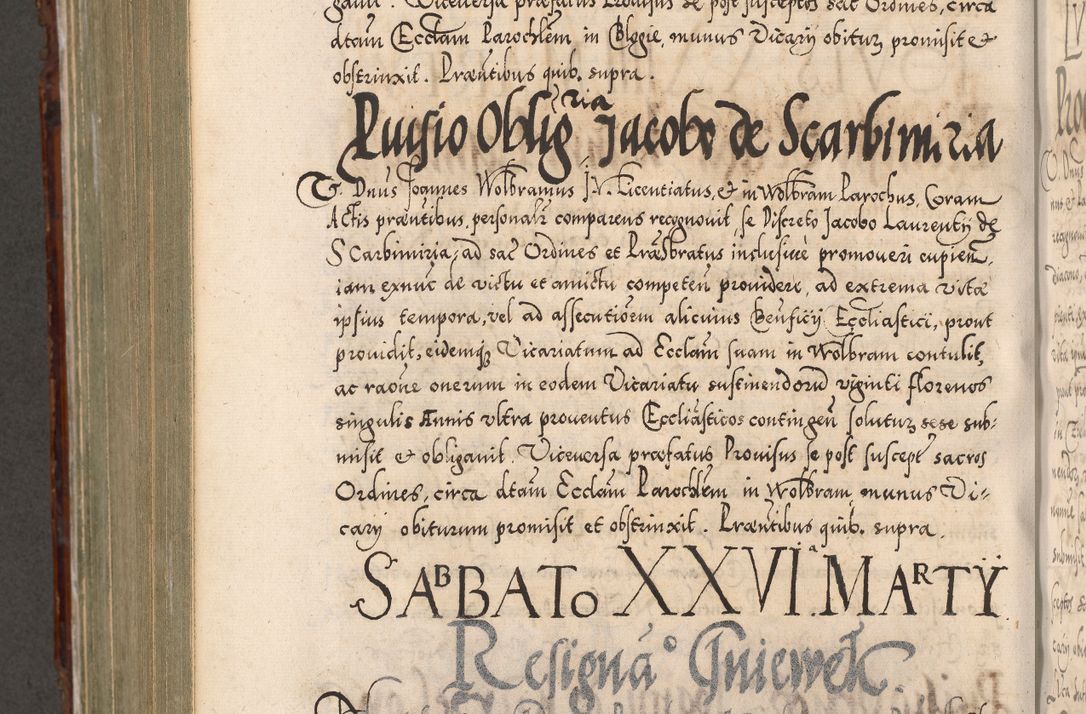 gauit. Viceuersa præfatus Prouisus se post susceptos sac Ordines, circa
dtam Ecclam Parochlem in Blogie, munus Vicarij obituz promisit et
obstrinxit. Præntibus quib. supra.
Puisio Oblig^ria Jacobo de Scarbimiria
V. Dnus Joannes Wolbramus J.V. Licentiatus, et in Wolbram Parochus, Coram
Actis præntibus, personalr comparens recognouit, se Discreto Jacobo Laurentij de
Scarbimiria, ad sac Ordines et Præsbratus inclusiue promoueri cupien,
iam exnuc de victu et amictu competen prouidere, ad extrema vitæ
ipsius tempora, vel ad assecutioem alicuius Beneficij Eccliastici, prout
prouidit, eidemq Vicariatum ad Ecclam suam in Wolbram contulit,
ac raoue onerum in eodem Vicariatu sustinendorū viginti florenos
singulis Annis vltra prouentus Eccliasticos contingen soluturz sese sub:
misit et obligauit. Viceuersa præfatus Prouisus se post suscept sacros
Ordines, circa dtam Ecclam Parochlem in Wolbram, munus Vi-
carij obiturum promisit et obstrinxit. Præntibus quib. supra.
SABBATo XXVI^a. MARTIJ.
Resigna^o Gniewek.